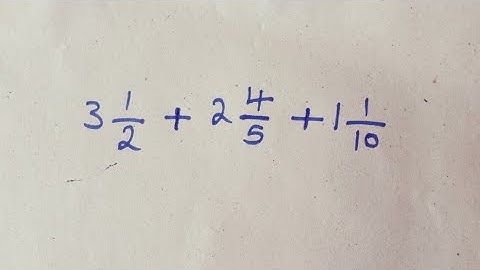 3 1/2 + 2 4/5 + 1 1/10